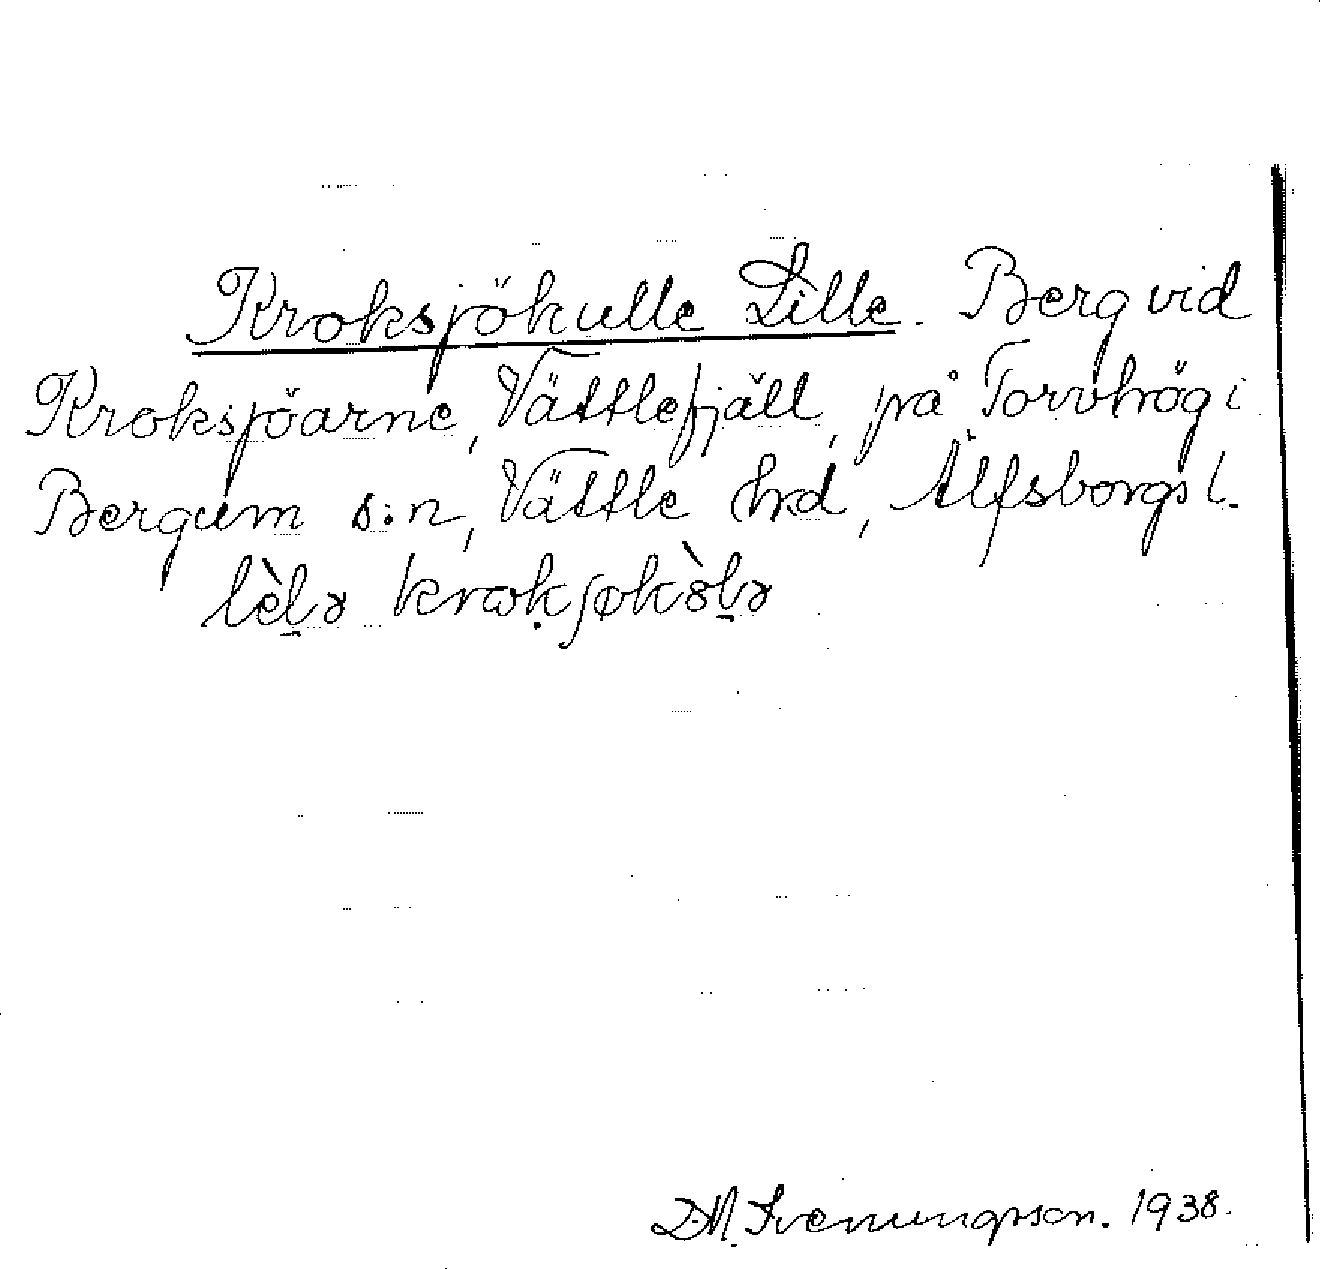 Kroksjökulle Lille. Berg vid
Kroksjöarne, Vättlefjäll, på Torvhög i
Bergum s:n, Vättle hrd, Älfsborgs l.
lèlə krokſøkòlə
D.M. Svenungsson. 1938.